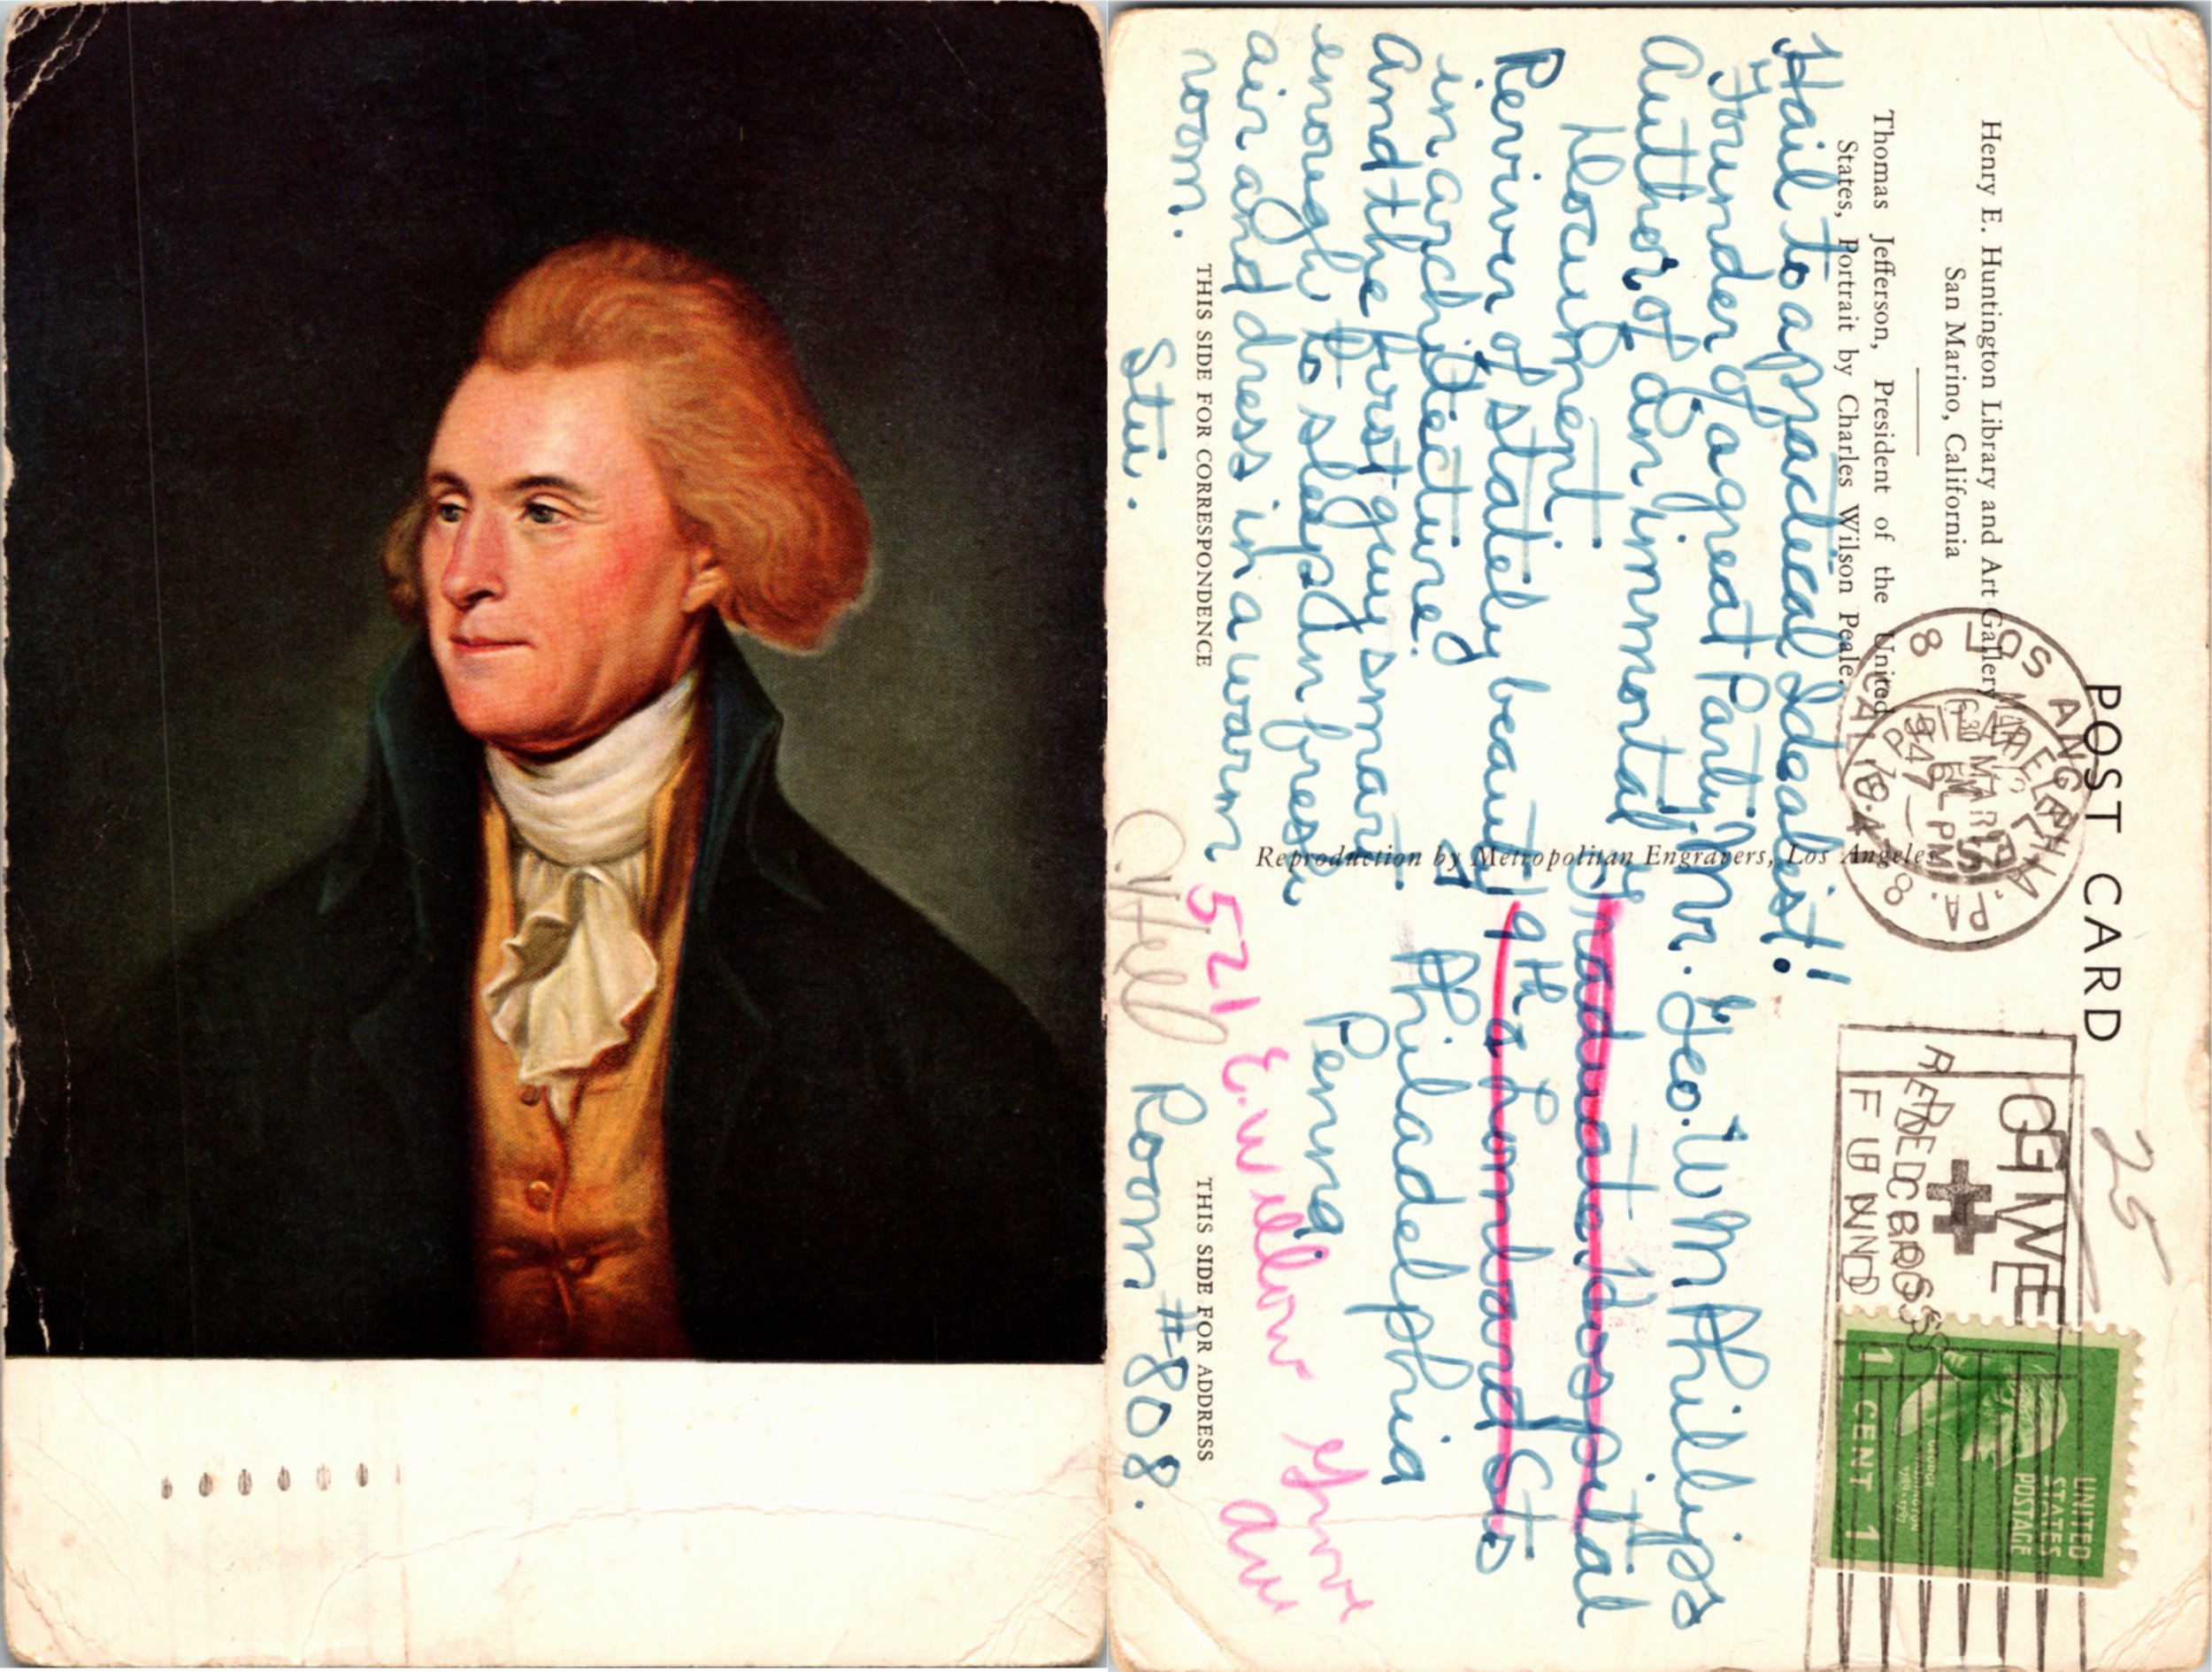 POST CARD
Henry E. Huntington Library and Art Gallery
San Marino, California
Thomas Jefferson, President of the United
States, Portrait by Charles Wilson Peale.
Hail to a practical Idealist!!
Founder of a great Party,
Author of an immortal
Document
Reviver of stately beauty
in architecture,
And the first guy smart
enough to sleep in fresh
air and dress in a warm
room.
Stu.
THIS SIDE FOR CORRESPONDENCE
Reproduction by Metropolitan Engravers, Los Angeles
LOS ANGELES
CAL
PHILADELPHIA, PA.
MAR
1947
PM
GIVE
RED CROSS
FUND
25
UNITED
STATES
POSTAGE
1 CENT 1
Mr. Geo. W M Phillips
Graduate Hospital
19th & Lombard Sts
Philadelphia
Penna.
521 E. Willow Grove
Ave
THIS SIDE FOR ADDRESS
Room #808.